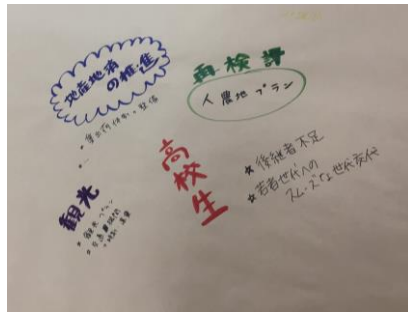 地産地消
の推進
再検討
人農地プラン
高校生
☆後継者不足
☆若者世代への
スムーズな世代交代
観光
・観光プラン